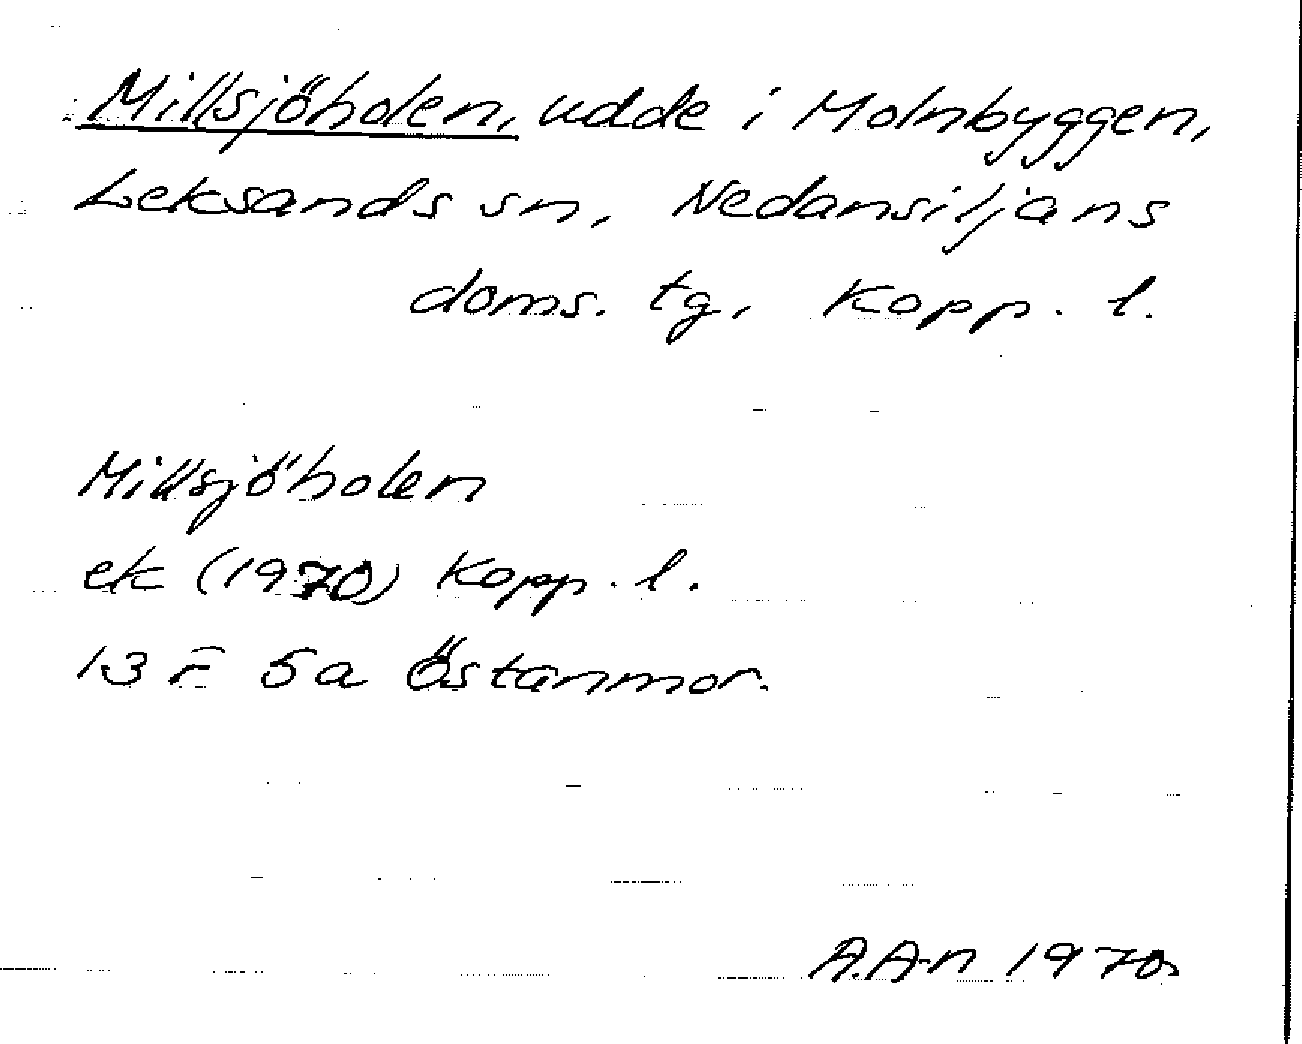 Millsjöholen, udde i Molnbyggen,
Leksands sn, Nedansiljans
doms. tg, Kopp. l.
Millsjöholen
ek (1970) Kopp. l.
13 F 5a Östanmor.
A.A-n 1970